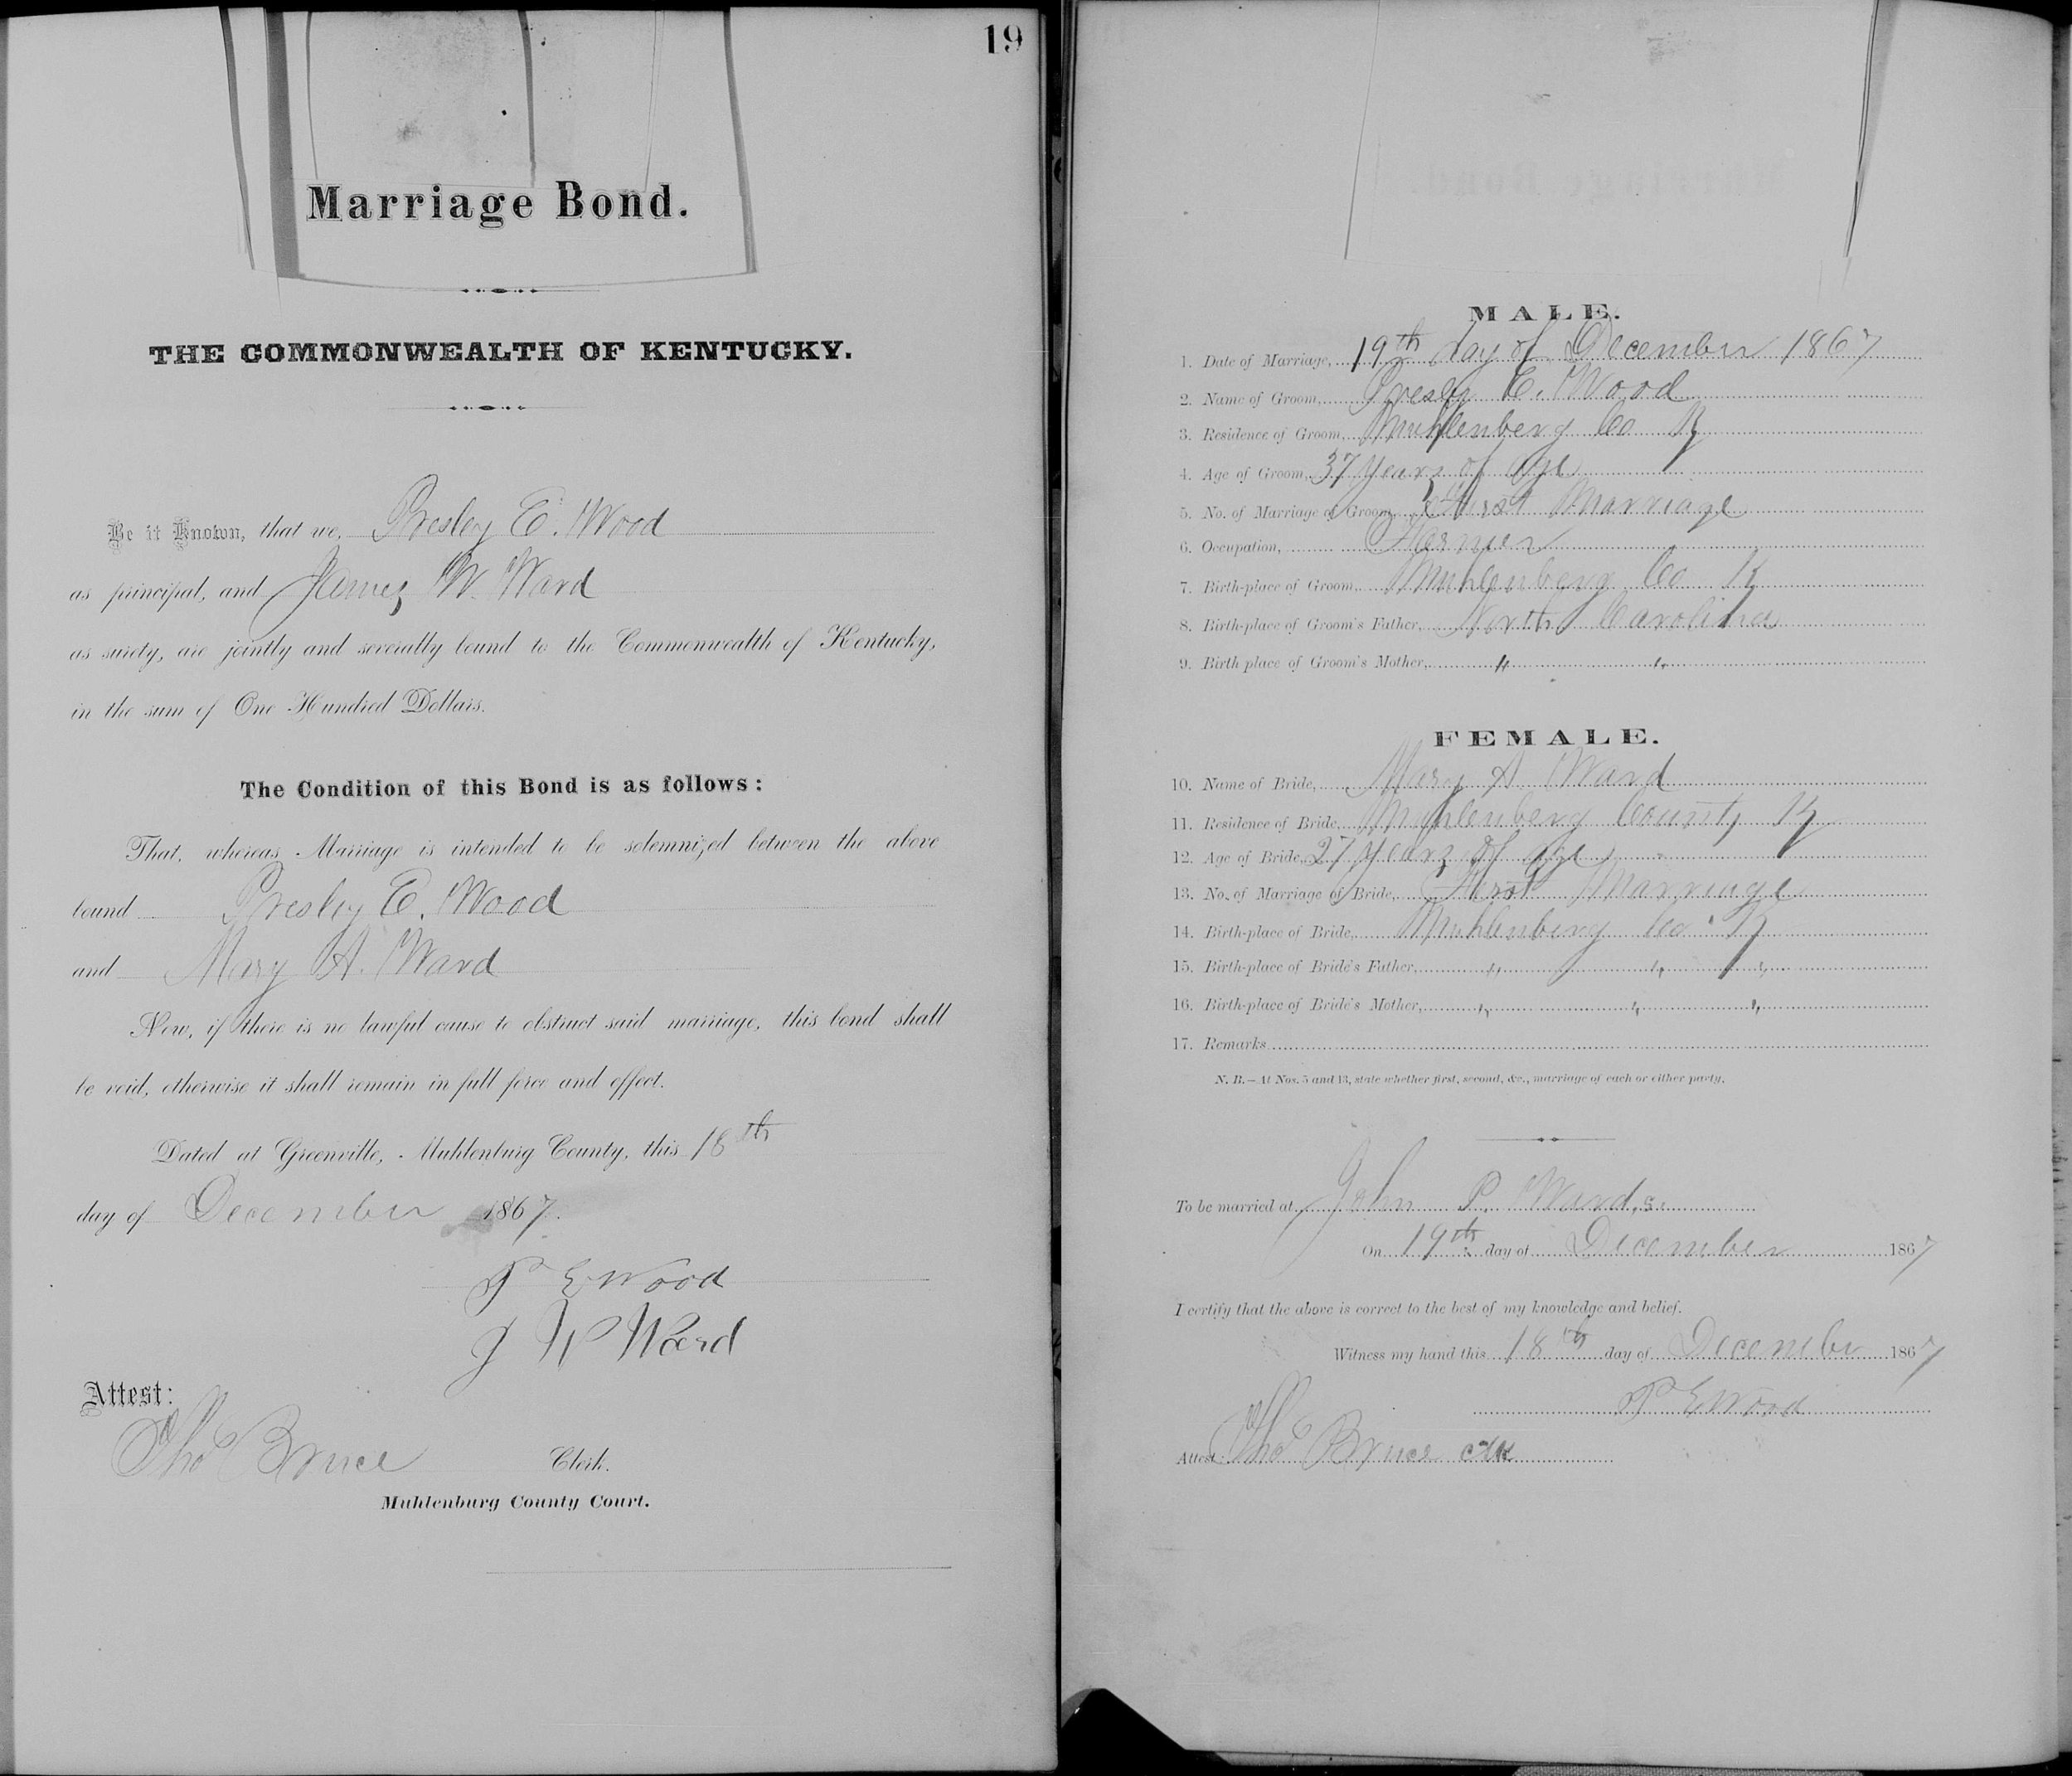 19
Marriage Bond.
THE COMMONWEALTH OF KENTUCKY.
Be it Known, that we, Presley E. Wood
as principal, and James W. Ward
as surety, are jointly and severally bound to the Commonwealth of Kentucky,
in the sum of One Hundred Dollars.
The Condition of this Bond is as follows:
That, whereas Marriage is intended to be solemnized between the above
bound Presley E. Wood
and Mary A. Ward
Now, if there is no lawful cause to obstruct said marriage, this bond shall
be void, otherwise it shall remain in full force and effect.
Dated at Greenville, Muhlenburg County, this 18th
day of December 1867.
P E Wood
J W Ward
Attest:
Thos Bruce Clerk.
Muhlenburg County Court.
MALE.
1. Date of Marriage, 19th day of December 1867
2. Name of Groom, Presley E. Wood
3. Residence of Groom, Muhlenberg Co Ky
4. Age of Groom, 37 years of age
5. No. of Marriage of Groom, First Marriage
6. Occupation, Farmer
7. Birth-place of Groom, Muhlenberg Co Ky
8. Birth-place of Groom's Father, North Carolina
9. Birth place of Groom's Mother, " "
FEMALE.
10. Name of Bride, Mary A Ward
11. Residence of Bride, Muhlenberg County Ky
12. Age of Bride, 27 years of age
13. No. of Marriage of Bride, First Marriage
14. Birth-place of Bride, Muhlenberg Co. Ky
15. Birth-place of Bride's Father, " " "
16. Birth-place of Bride's Mother, " " "
17. Remarks
N. B.—At Nos. 5 and 13, state whether first, second, &c., marriage of each or either party.
To be married at John P. Ward,s.
On 19th day of December 1867
I certify that the above is correct to the best of my knowledge and belief.
Witness my hand this 18th day of December 1867
P E Wood
Attest: Thos Bruce clk